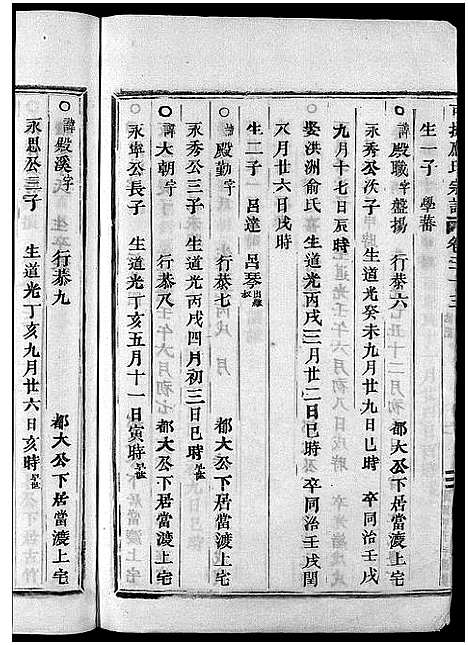 生一子 學蕃
諱殿職字盤揚 行恭六 都大公下居當渡上宅
永秀公次子 生道光癸未九月廿九日巳時 卒同治壬戌
九月十七日辰時
娶洪洲俞氏 生道光丙戌三月廿二日巳時 卒同治壬戌閏
八月廿六日戌時
生二子 呂達 呂琴出繼
諱殿勤字 行恭七 都大公下居當渡上宅
永秀公三子 生道光丙戌四月初三日巳時 早世
諱大朝字 行恭八 都大公下居當渡上宅
永卑公長子 生道光丁亥五月十一日寅時 早世
諱殿溪字 行恭九 都大公下居當渡上宅
永思公三子 生道光丁亥九月廿六日亥時 早世